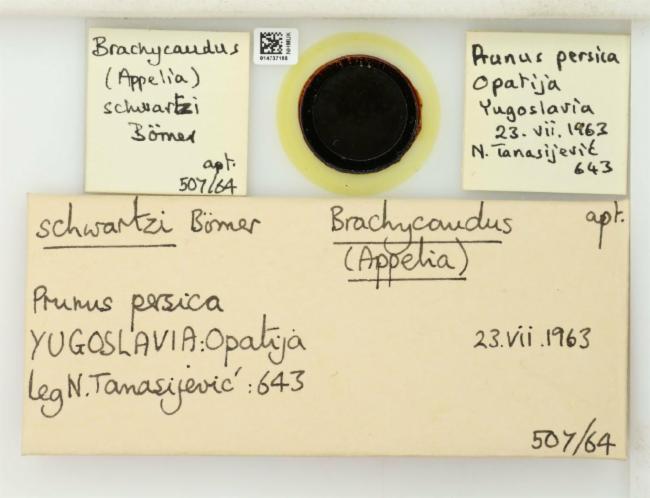 Brachycaudus
(Appelia)
schwartzi
Börner
apt.
507/64
NHMUK
014737188
Prunus persica
Opatija
Yugoslavia
23. vii. 1963
N. Tanasijević
643
schwartzi Börner
Brachycaudus
(Appelia)
apt.
Prunus persica
YUGOSLAVIA: Opatija
23. vii. 1963
leg N. Tanasijević: 643
507/64